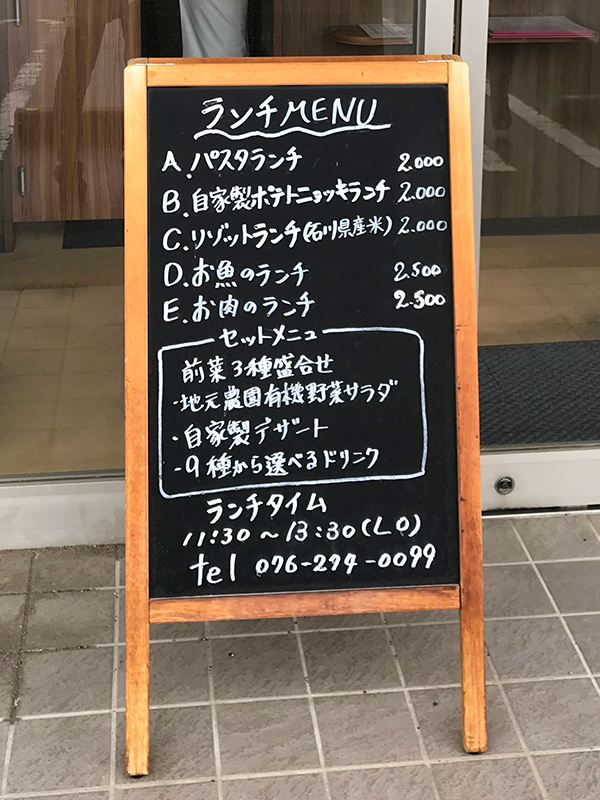 ランチMENU
A.パスタランチ 2.000
B.自家製ポテトニョッキランチ 2.000
C.リゾットランチ(石川県産米) 2.000
D.お魚のランチ 2.500
E.お肉のランチ 2.500
セットメニュー
前菜3種盛合せ
・地元農園有機野菜サラダ
・自家製デザート
・9種から選べるドリンク
ランチタイム
11:30〜13:30(LO)
tel 076-274-0099